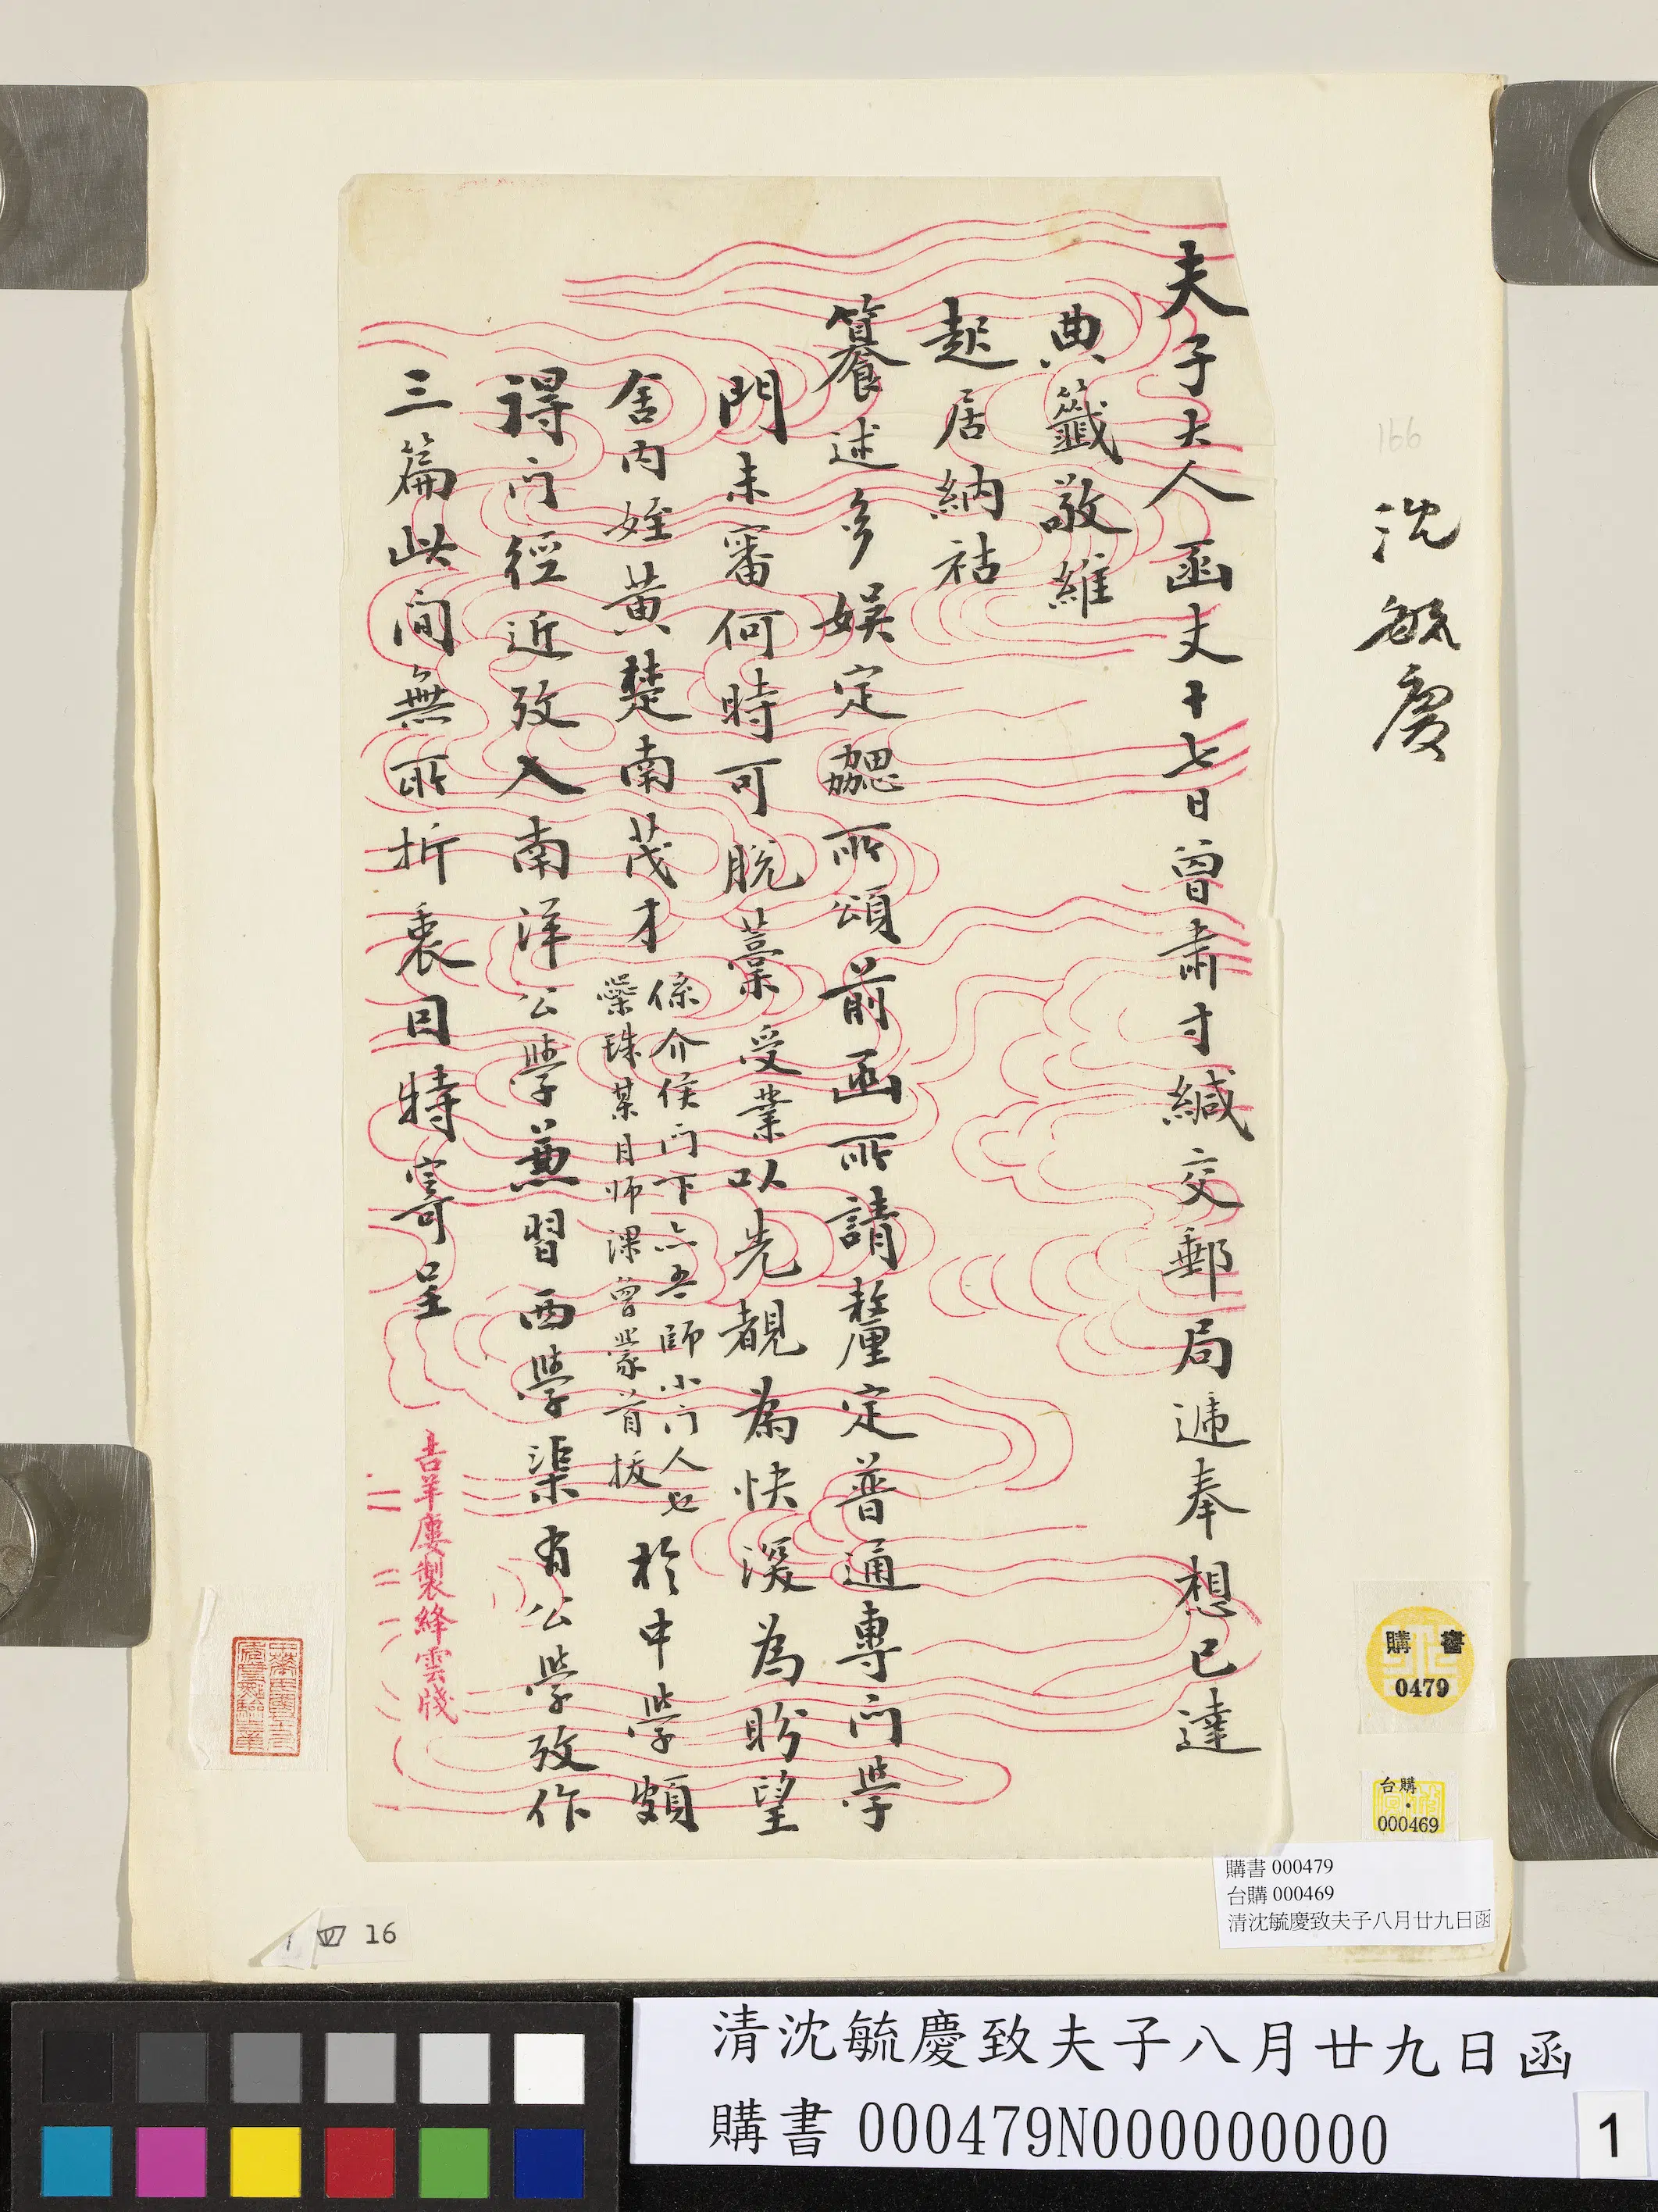 夫子大人函丈十七日曾肅寸緘交郵局遞奉想已達
典籤敬維
起居納祜
籑述多娛定勰所頌前函所請釐定普通專门學
門未審何時可脫藳受業以先覩為快深為盼望
舍内姪黄楚南茂才
係介侯门下亦吾師小门人也
縈珠某月师课曾蒙首拔
於中學頗
得门徑近攷入南洋公學兼習西學渠有公學攷作
三篇此间無所折衷因特寄呈
吉羊廔製絳雲牋
沈毓慶
166
購書
0479
台購
000469
購書 000479
台購 000469
清沈毓慶致夫子八月廿九日函
四 16
清沈毓慶致夫子八月廿九日函
購書 000479N000000000
1